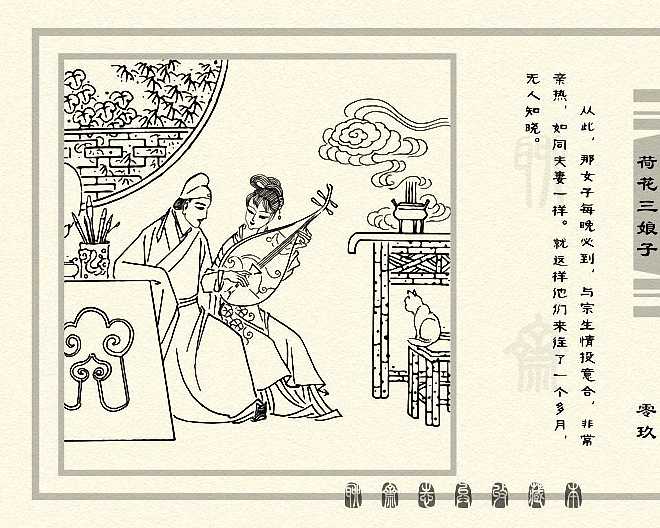 荷花三娘子
零玖
从此，那女子每晚必到，与宗生情投意合，非常
亲热，如同夫妻一样。就这样他们来往了一个多月，
无人知晓。
聊斋志异收藏本